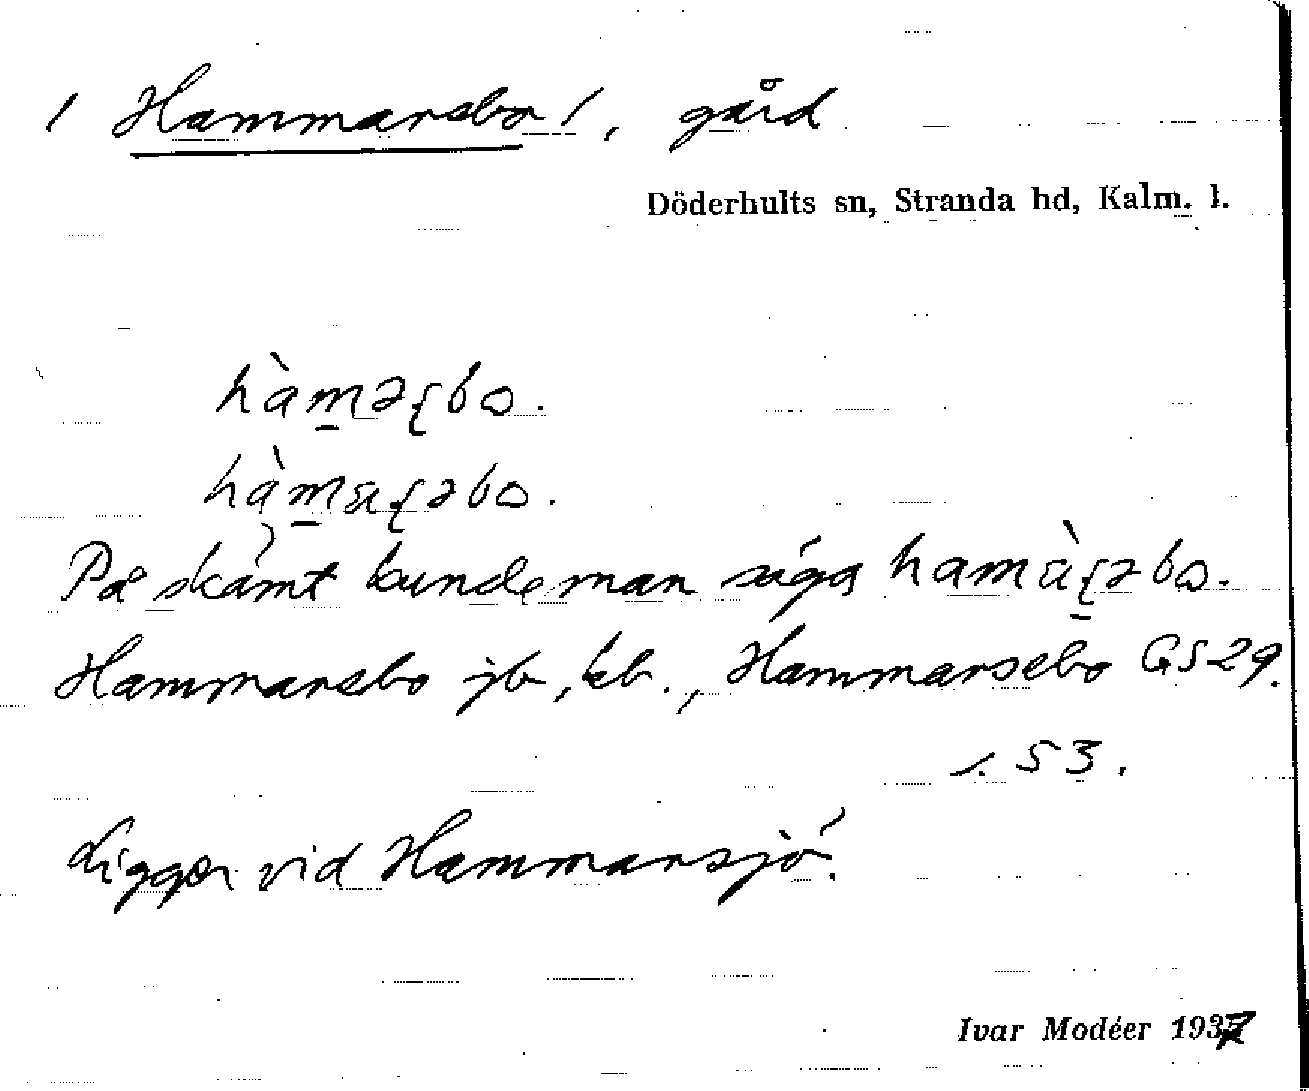 / Hammarsbo /, gård
Döderhults sn, Stranda hd, Kalm. l.
hàm̲əʂbo.
hàm̲aʂəbo.
På skämt kunde man säga hamàʂ̲əbo.
Hammarsbo jb, kb., Hammarsebo GS29.
s. 53.
Ligger vid Hammarsjö.
Ivar Modéer 1937